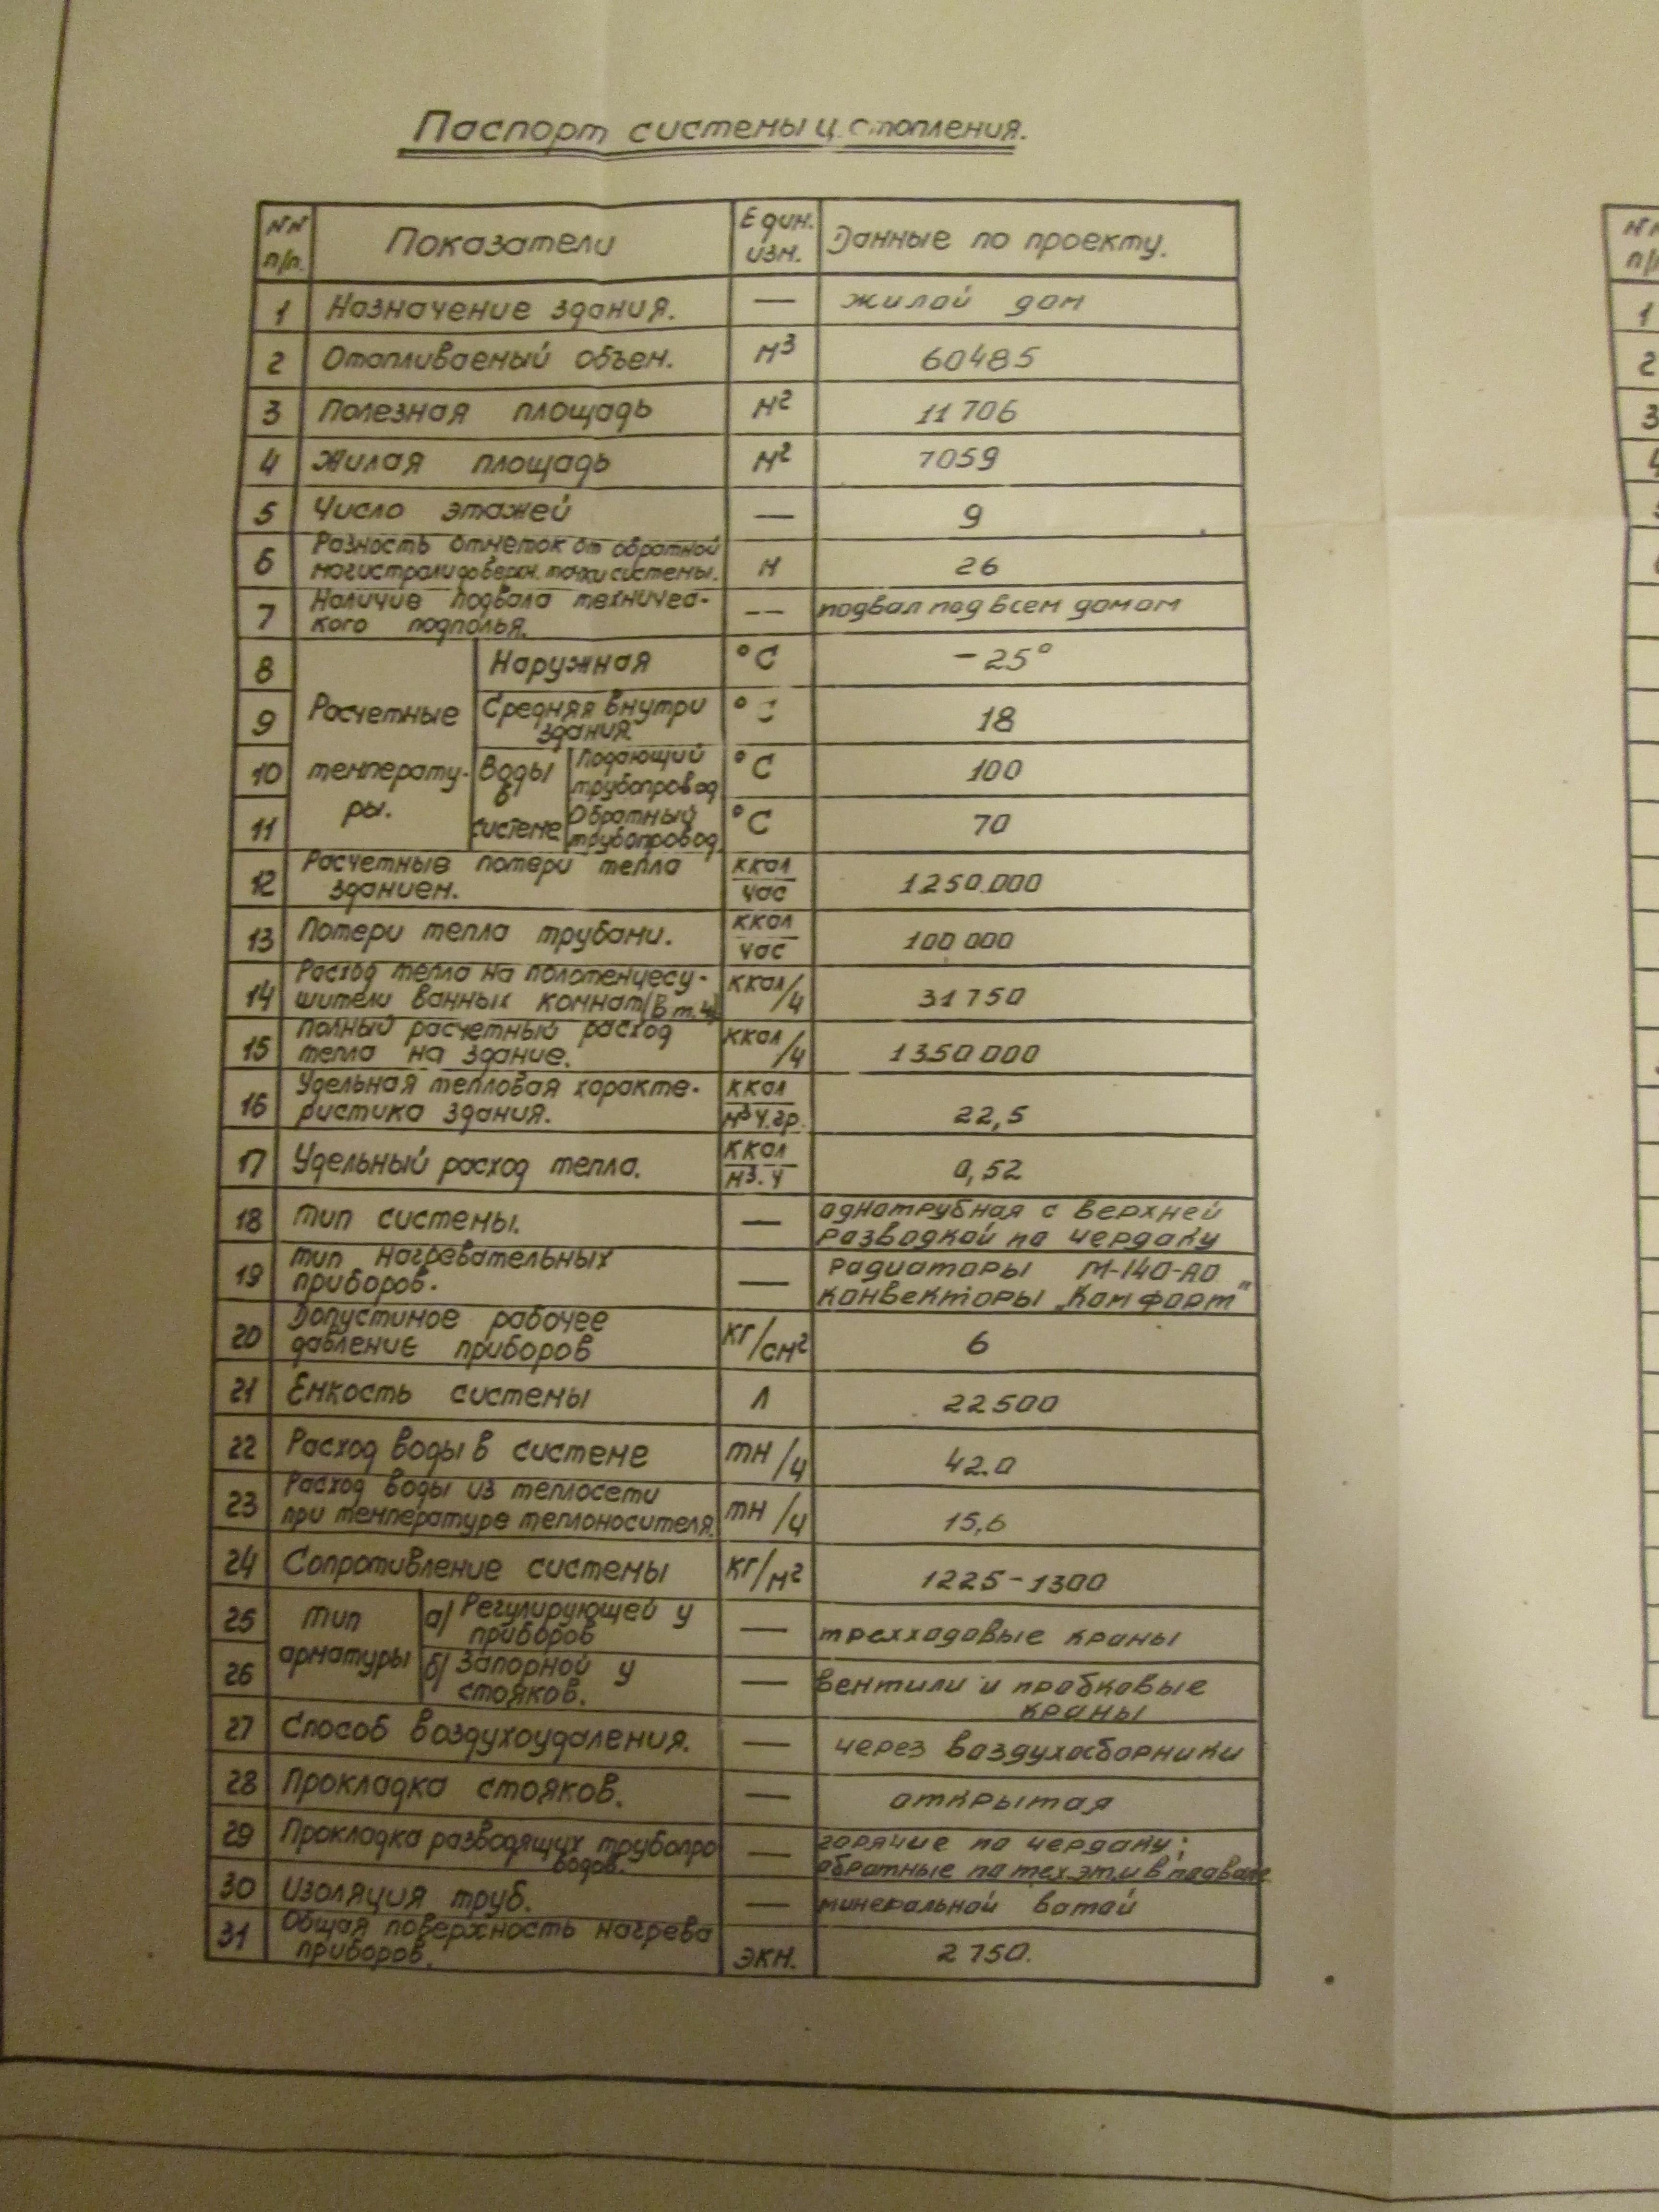 Паспорт системы ц. отопления.
NN п/п. Показатели Един. изм. Данные по проекту.
1 Назначение здания. — жилой дом
2 Отапливаемый объем. м³ 60485
3 Полезная площадь м² 11706
4 Жилая площадь м² 7059
5 Число этажей — 9
6 Разность отметок от обратной магистрали до верхн. точки системы. м 26
7 Наличие подвала техничес-
кого подполья. -- подвал под всем домом
Расчетные температу-
ры.
8 Наружная °C -25°
9 Средняя внутри здания. °C 18
Воды в системе
10 Подающий трубопровод °C 100
11 Обратный трубопровод °C 70
12 Расчетные потери тепла зданием. ккал/час 1250.000
13 Потери тепла трубами. ккал/час 100 000
14 Расход тепла на полотенцесу-
шители ванных комнат (в т.ч) ккал/ч 31750
15 Полный расчетный расход тепла на здание. ккал/ч 1350 000
16 Удельная тепловая характе-
ристика здания. ккал/м³ч.гр. 22,5
17 Удельный расход тепла. ккал/м³.ч 0,52
18 Тип системы. — однотрубная с верхней разводкой по чердаку
19 Тип нагревательных приборов. — радиаторы М-140-АО
конвекторы „Комфорт"
20 Допустимое рабочее давление приборов кг/см² 6
21 Емкость системы л 22500
22 Расход воды в системе тн/ч 42.0
23 Расход воды из теплосети при температуре теплоносителя. тн/ч 15,6
24 Сопротивление системы кг/м² 1225-1300
Тип арматуры
25 а) Регулирующей у приборов — трехходовые краны
26 б) Запорной у стояков. — вентили и пробковые краны
27 Способ воздухоудаления. — через воздухосборники
28 Прокладка стояков. — открытая
29 Прокладка разводящих трубопро
водов. — горячие по чердаку;
обратные по тех.эт.и в подвале
30 Изоляция труб. — минеральной ватой
31 Общая поверхность нагрева приборов. экм. 2750.
NN
п/п
1
2
3
4